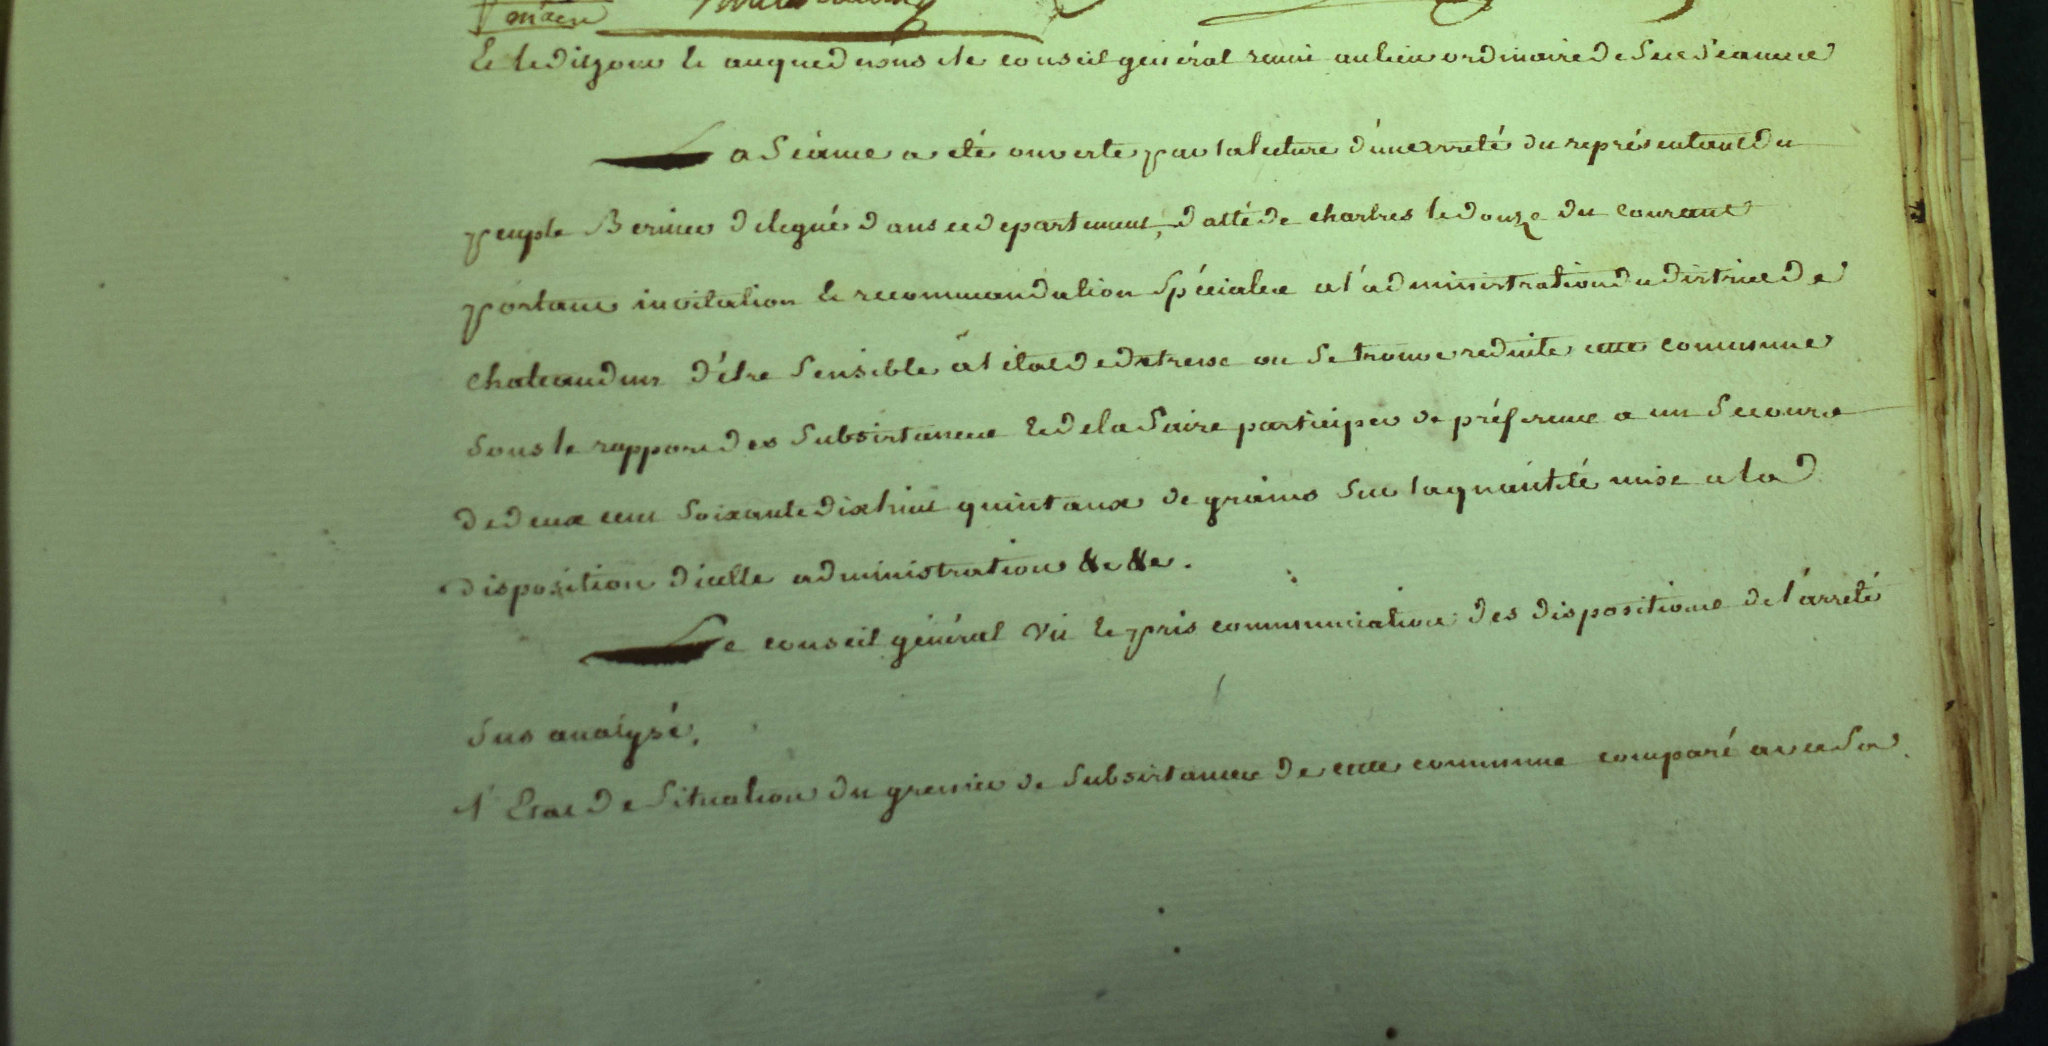 maire
Et ledit jour et an que dessus le conseil général reuni au lieu ordinaire de ses séances
La Séance a été ouverte par la lecture d'un arrêté du représentant du
peuple Bernier delegué dans ce departement, datté de chartres le douze du courant
portant invitation et recommandation Spéciale a l'administration du district de
chateaudun d'être Sensible à l'état de detresse ou Se trouve reduite cette commune
Sous le rapport des Subsistances et de la faire participer de préference a un Secours
de deux cent Soixante dix huit quintaux de grains Sur la quantité mise a la d
disposition d'icelle administration &c &c.
Le conseil général vu et pris communication des dispositions de l'arreté
Sus analysé,
l'Etat de Situation du grenier de Subsistances de cette commune comparé avec Sa